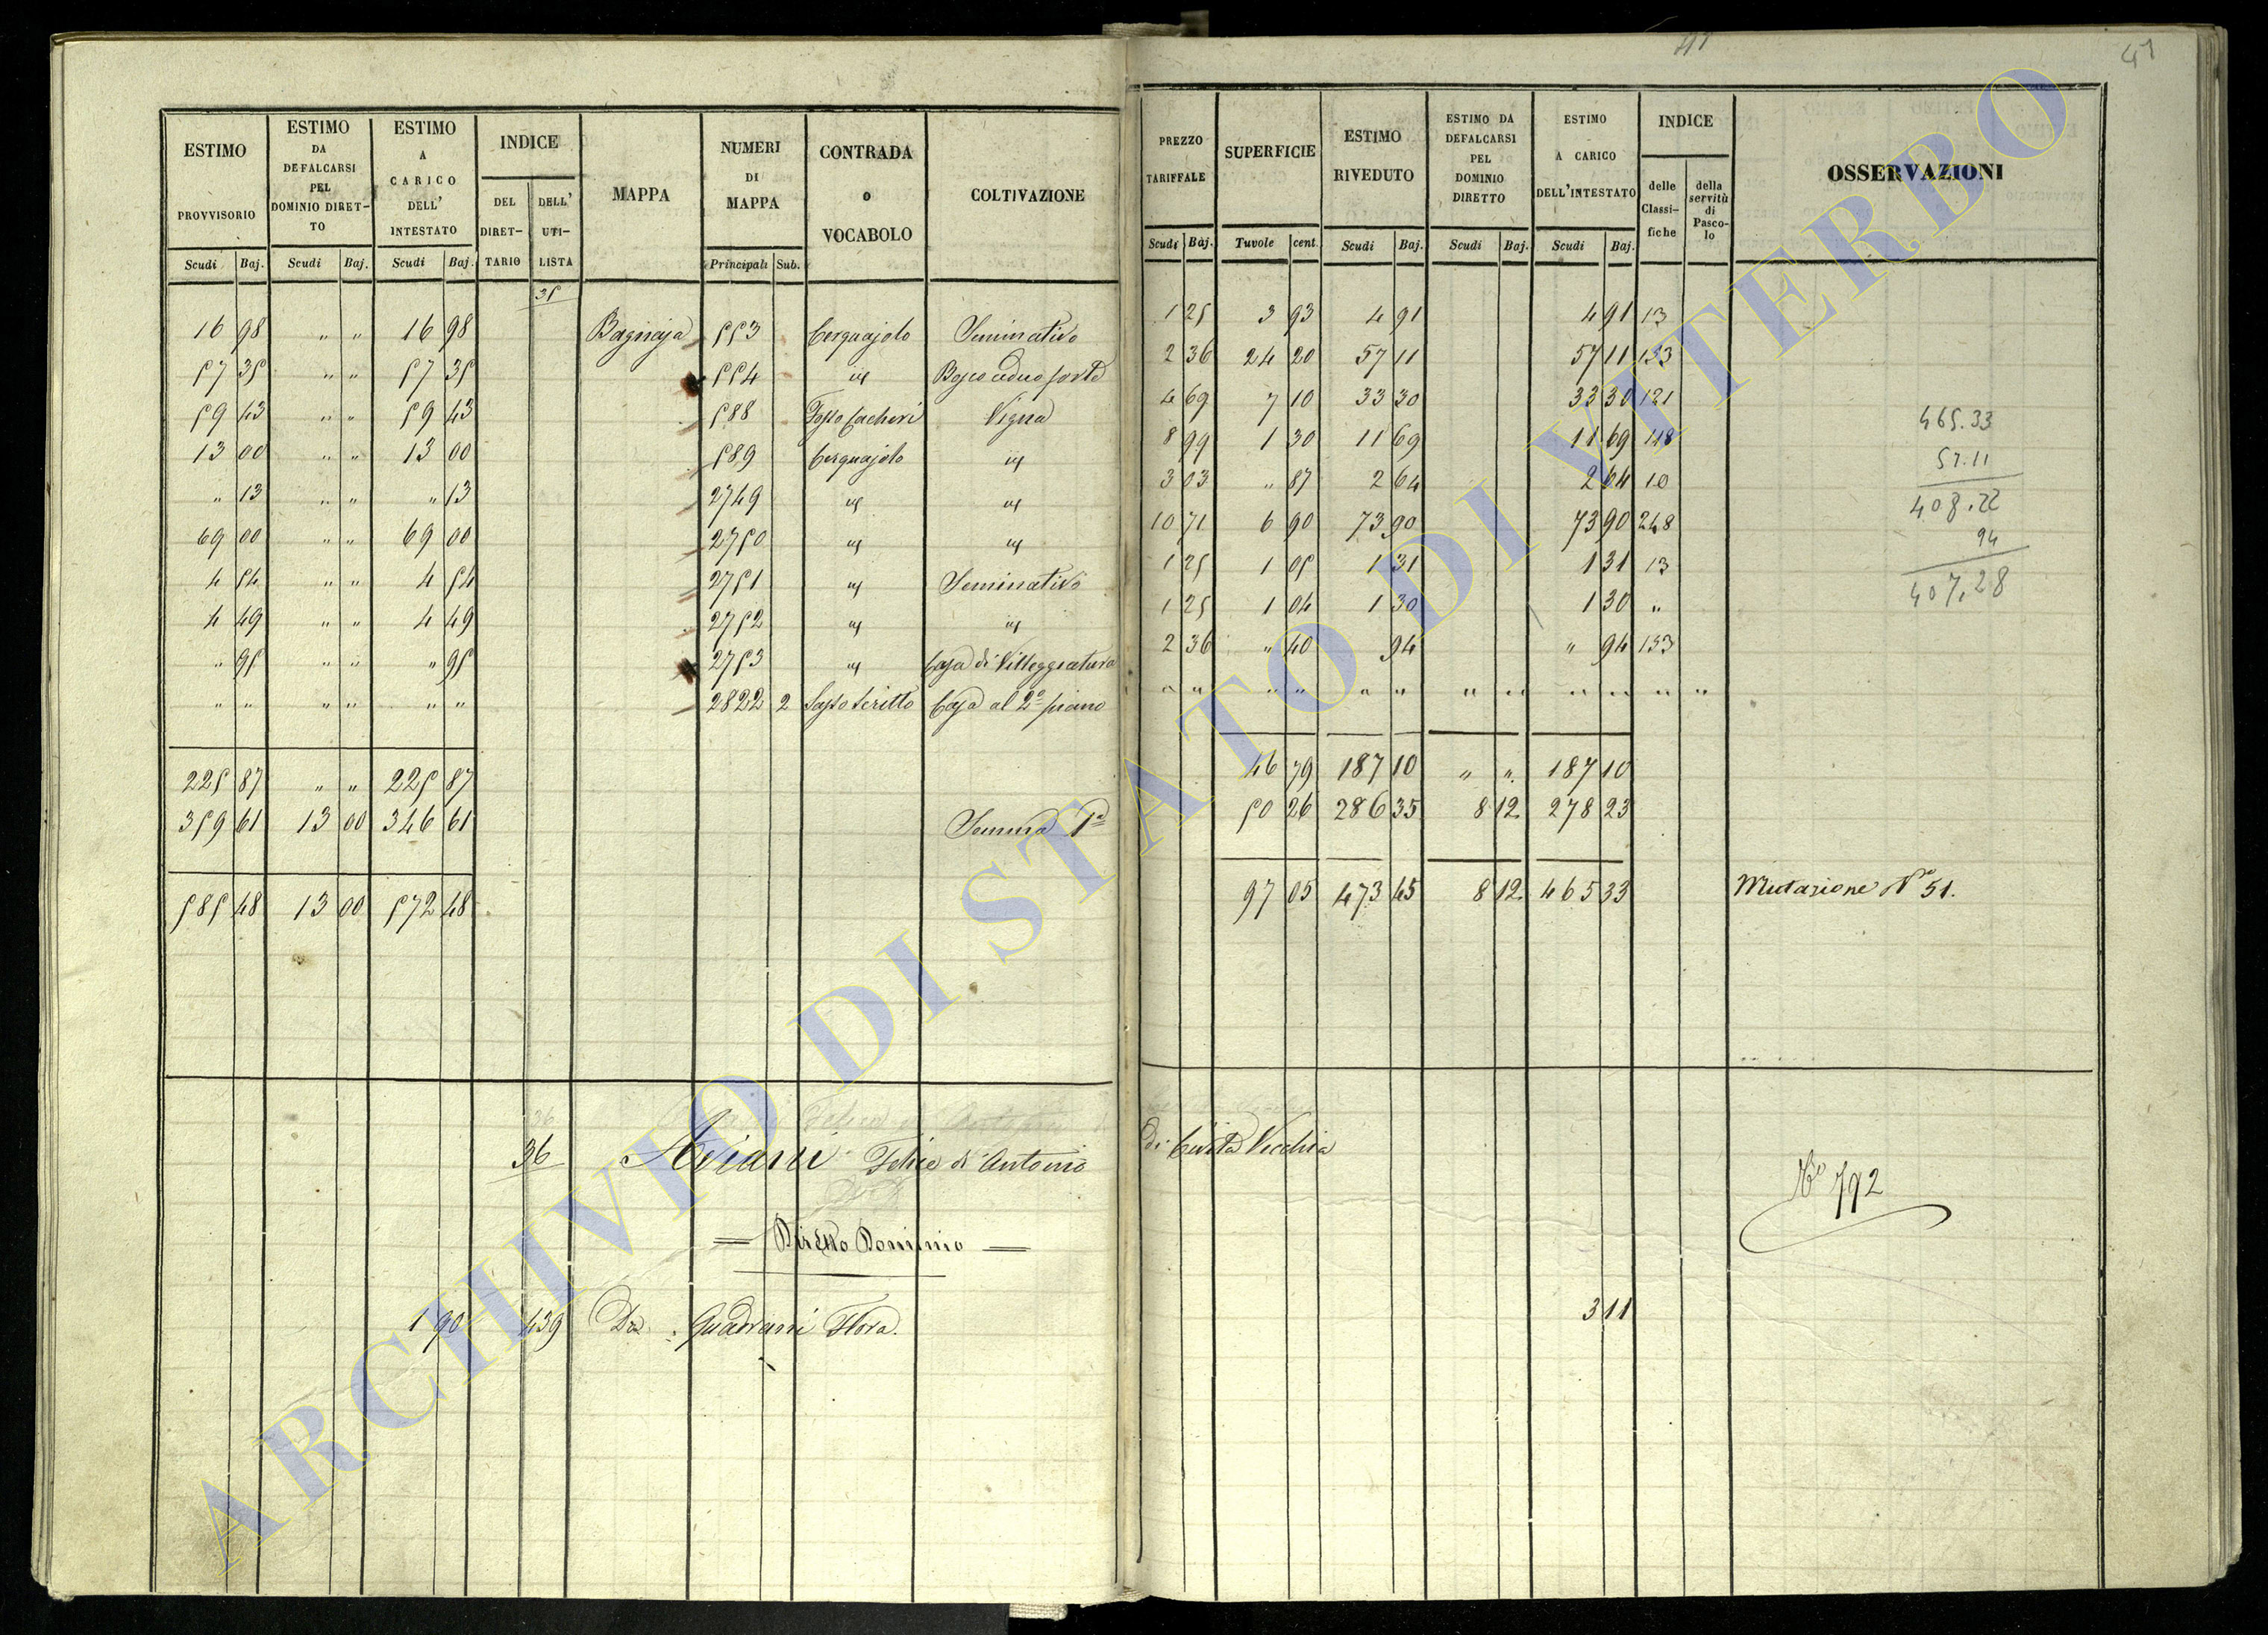 41
ESTIMO PROVVISORIO
ESTIMO DA DEFALCARSI PEL DOMINIO DIRET-TO
ESTIMO A CARICO DELL' INTESTATO
INDICE
DEL DIRET-TARIO
DELL' UTI-LISTA
MAPPA
NUMERI DI MAPPA
CONTRADA o VOCABOLO
COLTIVAZIONE
Scudi Baj. Scudi Baj. Scudi Baj. Principali Sub.
35
16 98 " " 16 98 Bagnaja 553 Cerquajolo Seminativo
57 35 " " 57 35 554 id Bosco ceduo forte
59 43 " " 59 43 588 Fosso Vigna
13 00 " " 13 00 589 Cerquajolo id
" 13 " " " 13 2749 id id
69 00 " " 69 00 2750 id id
4 54 " " 4 54 2751 id Seminativo
4 49 " " 4 49 2752 id id
" 95 " " " 95 2753 id Casa di Villeggiatura
" " " " " " 2822 2 Sasso Scritto Casa al 2º piano
225 87 " " 225 87
359 61 13 00 346 61 Somma Pª
585 48 13 00 572 48
36
36 Felice di Antonio
Diretto Dominio
1 90 439 Da Quadrani Flora.
41
PREZZO TARIFFALE
SUPERFICIE
ESTIMO RIVEDUTO
ESTIMO DA DEFALCARSI PEL DOMINIO DIRETTO
ESTIMO A CARICO DELL'INTESTATO
INDICE
delle Classi-fiche
della servitù di Pasco-lo
OSSERVAZIONI
Scudi Baj. Tavole cent. Scudi Baj. Scudi Baj. Scudi Baj.
1 25 3 93 4 91 4 91 13
2 36 24 20 57 11 57 11 133
4 69 7 10 33 30 33 30 121
8 99 1 30 11 69 11 69 148
3 03 " 87 2 64 2 64 10
10 71 6 90 73 90 73 90 248
1 25 1 05 1 31 1 31 13
1 25 1 04 1 30 1 30 "
2 36 " 40 94 " 94 133
" " " " " " " " " " " "
46 79 187 10 " " 187 10
50 26 286 35 8 12 278 23
97 05 473 45 8 12 465 33 Mutazione Nº 51.
465.33
57.11
408.22
94
407,28
di Civita Vecchia
Nº 792
3 11
ARCHIVIO DI STATO DI VITERBO